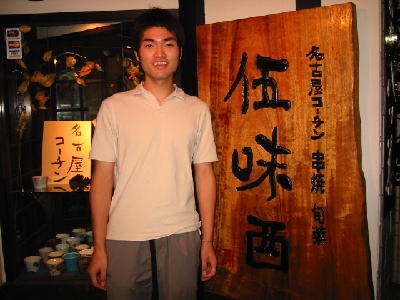 名古屋コーチン 串焼 旬菜
伍味酉
名古屋
コーチン